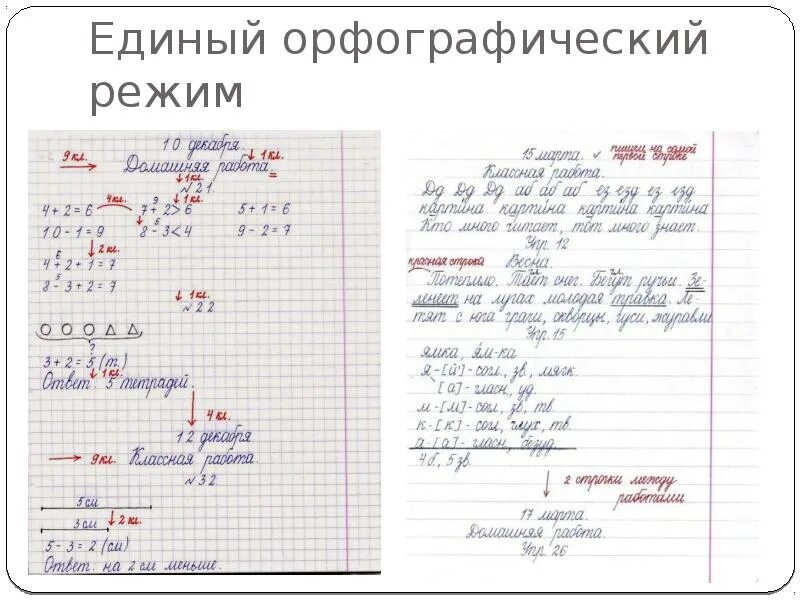 Единый орфографический
режим
10 декабря.
9 кл. ↓ 1 кл.
Домашняя работа.
↓ 1 кл.
№ 21.
4 кл. 9 ↓ 1 кл.
4 + 2 = 6 7 + 2 > 6 5 + 1 = 6
5
10 - 1 = 9 8 - 3 < 4 9 - 2 = 7
↓ 2 кл.
6
4 + 2 + 1 = 7
5
8 - 3 + 2 = 7
↓ 1 кл.
№ 22.
?
3 + 2 = 5 (т.)
↓ 1 кл.
Ответ: 5 тетрадей.
4 кл.
12 декабря.
9 кл. Классная работа.
№ 32.
5 см
3 см ↓ 2 кл.
5 - 3 = 2 (см)
Ответ: на 2 см меньше.
15 марта. ✓ пишем на самой
первой строке
Классная работа.
Дд Дд Дд аб аб аб ез езд ез езд
картина картина картина картина
Кто много читает, тот много знает.
Упр. 12
красная строка Весна.
гл. гл.
Потеплело. Тает снег. Бегут ручьи. Зе-
ленеет на лугах молодая травка. Ле-
тят с юга грачи, скворцы, гуси, журавли.
Упр. 15
ямка, ям-ка
я - [й'] - согл., зв., мягк.
[а] - гласн., уд.
м - [м] - согл., зв., тв.
к - [к] - согл., глух., тв.
а - [а] - гласн., безуд.
4 б., 5 зв.
2 строчки между
работами
17 марта.
Домашняя работа.
Упр. 26